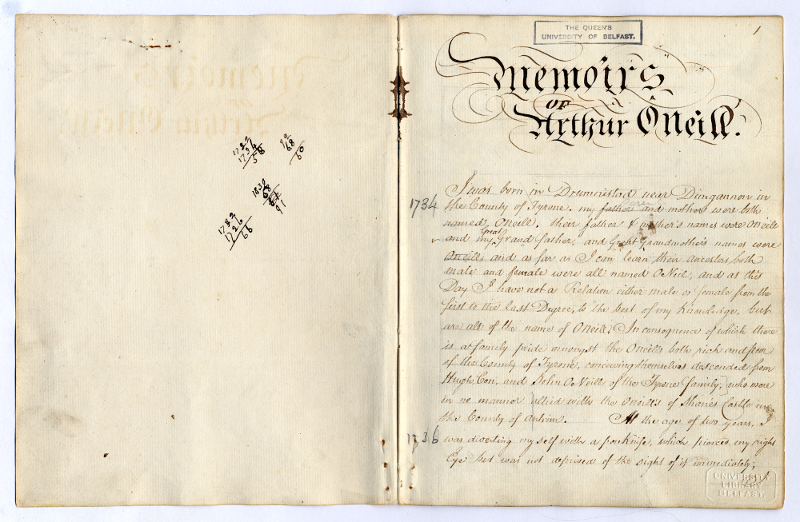 1792
1734
58
68
60
1792
1726
66
91
THE QUEEN'S
UNIVERSITY OF BELFAST.
1
Memoirs
OF
Arthur ONeill.
1734
I was born in Drumnistad near Dungannon in
the County of Tyrone. my father and mother were both
named, ONeill. their father & mother's names were ONeill
and my great grand father, and Great Grandmother's names were
ONeill, and as far as I can learn their ancestors both
male and female were all named ONeil, and at this
Day I have not a Relation either male or female from the
first to the last Degree, to the best of my Knowledge, but
are all of the name of ONeill, In consequence of which there
is a family pride amongst the ONeills both rich and poor
of the County of Tyrone, conceiving themselves descended from
Hugh, Con, and John ONeill of the Tyrone family, who were
in no manner allied with the ONeills of Shane's Castle in
the County of Antrim. At the age of two years, I
1736
was diverting myself with a penknife, which pierced my right
Eye but was not deprived of the sight of it immediately,
UNIVERSITY
LIBRARY
BELFAST